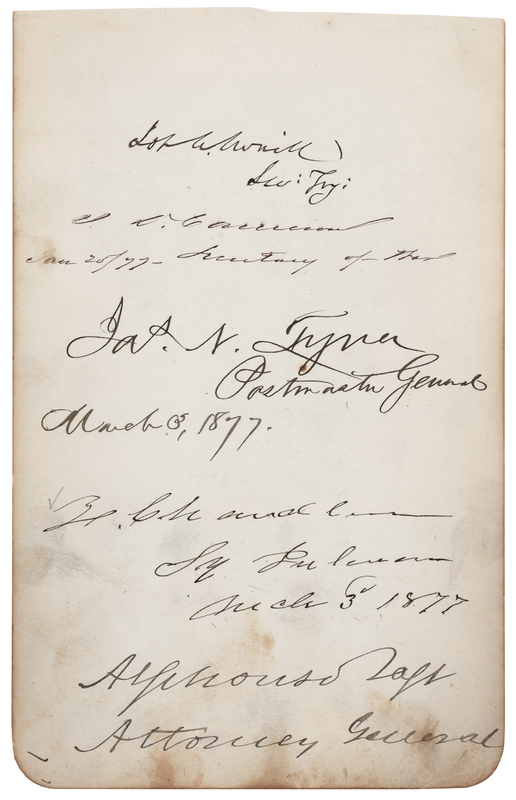 Lot M. Morrill
Sec: Try:
J. D. Cameron
Jan 20/77 - Secretary of War
Jas. N. Tyner
Postmaster General
March 3, 1877.
Z. Chandler
Sy Interior
Mch 3d 1877
Alphonso Taft
Attorney General